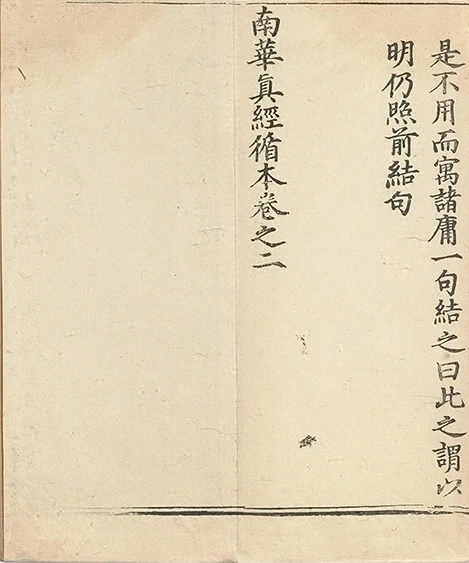 是不用而寓諸庸一句結之曰此之謂以
明仍照前結句
南華眞經循本卷之二